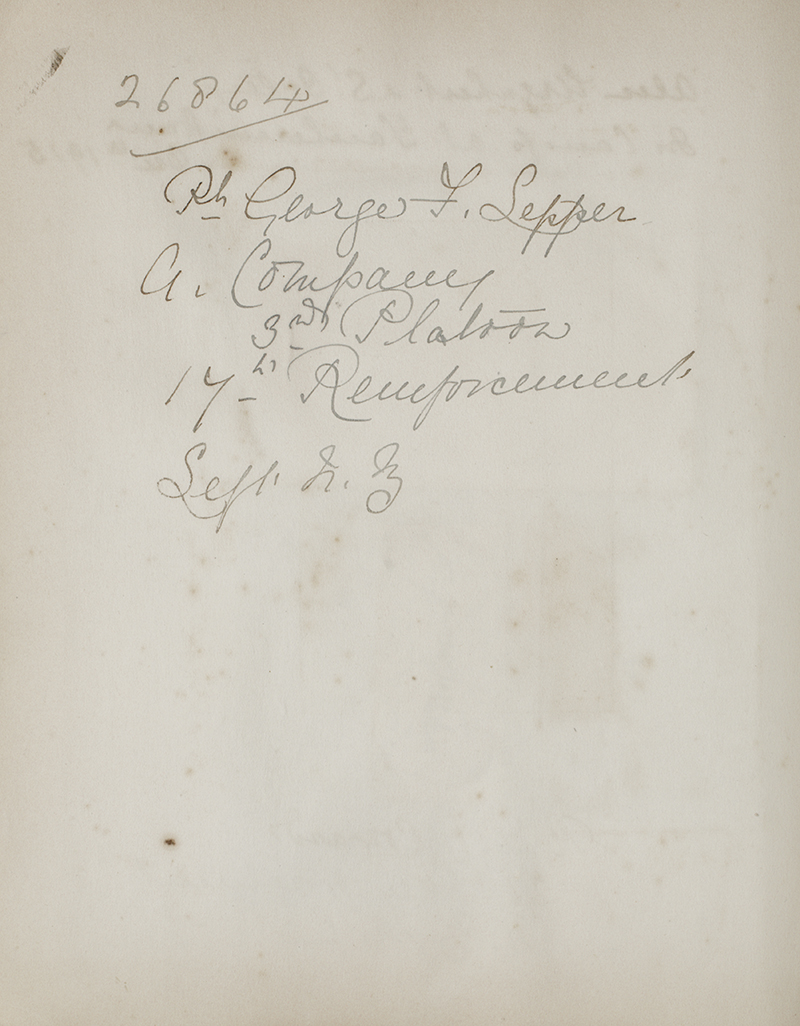 26864
Ph George F. Lepper
A. Company
3rd Platoon
17th Reinforcement
Left N. Z